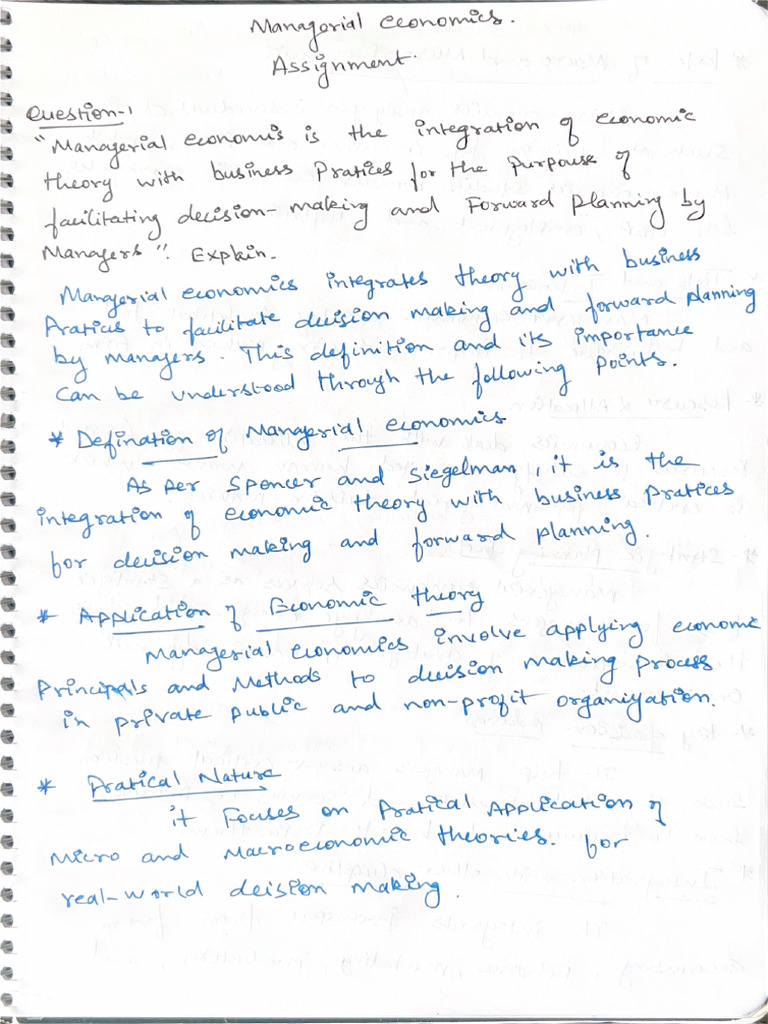 Managorial economics.
Assignment.
Question-1
"Managerial economis is the integration of economic
theory with business Pratices for the Purpouse of
facilitating decision-making and Forward Planning by
Managers". Explain.
Managerial economics integrates theory with business
Pratices to facilitate decision making and forward planning
by managers. This definition and its importance
can be understood through the following points.
* Defination of Managerial economics
As per Spencer and Siegelman, it is the
integration of economic theory with business pratices
for decision making and forward planning.
* Application of Economic theory
Managerial Economics involve applying economic
Principals and Methods to decision making process
in private public and non-profit organization.
* Pratical Nature
it Focuses on Pratical Application of
Micro and Macroeconomic theories. for
real-world deision making.